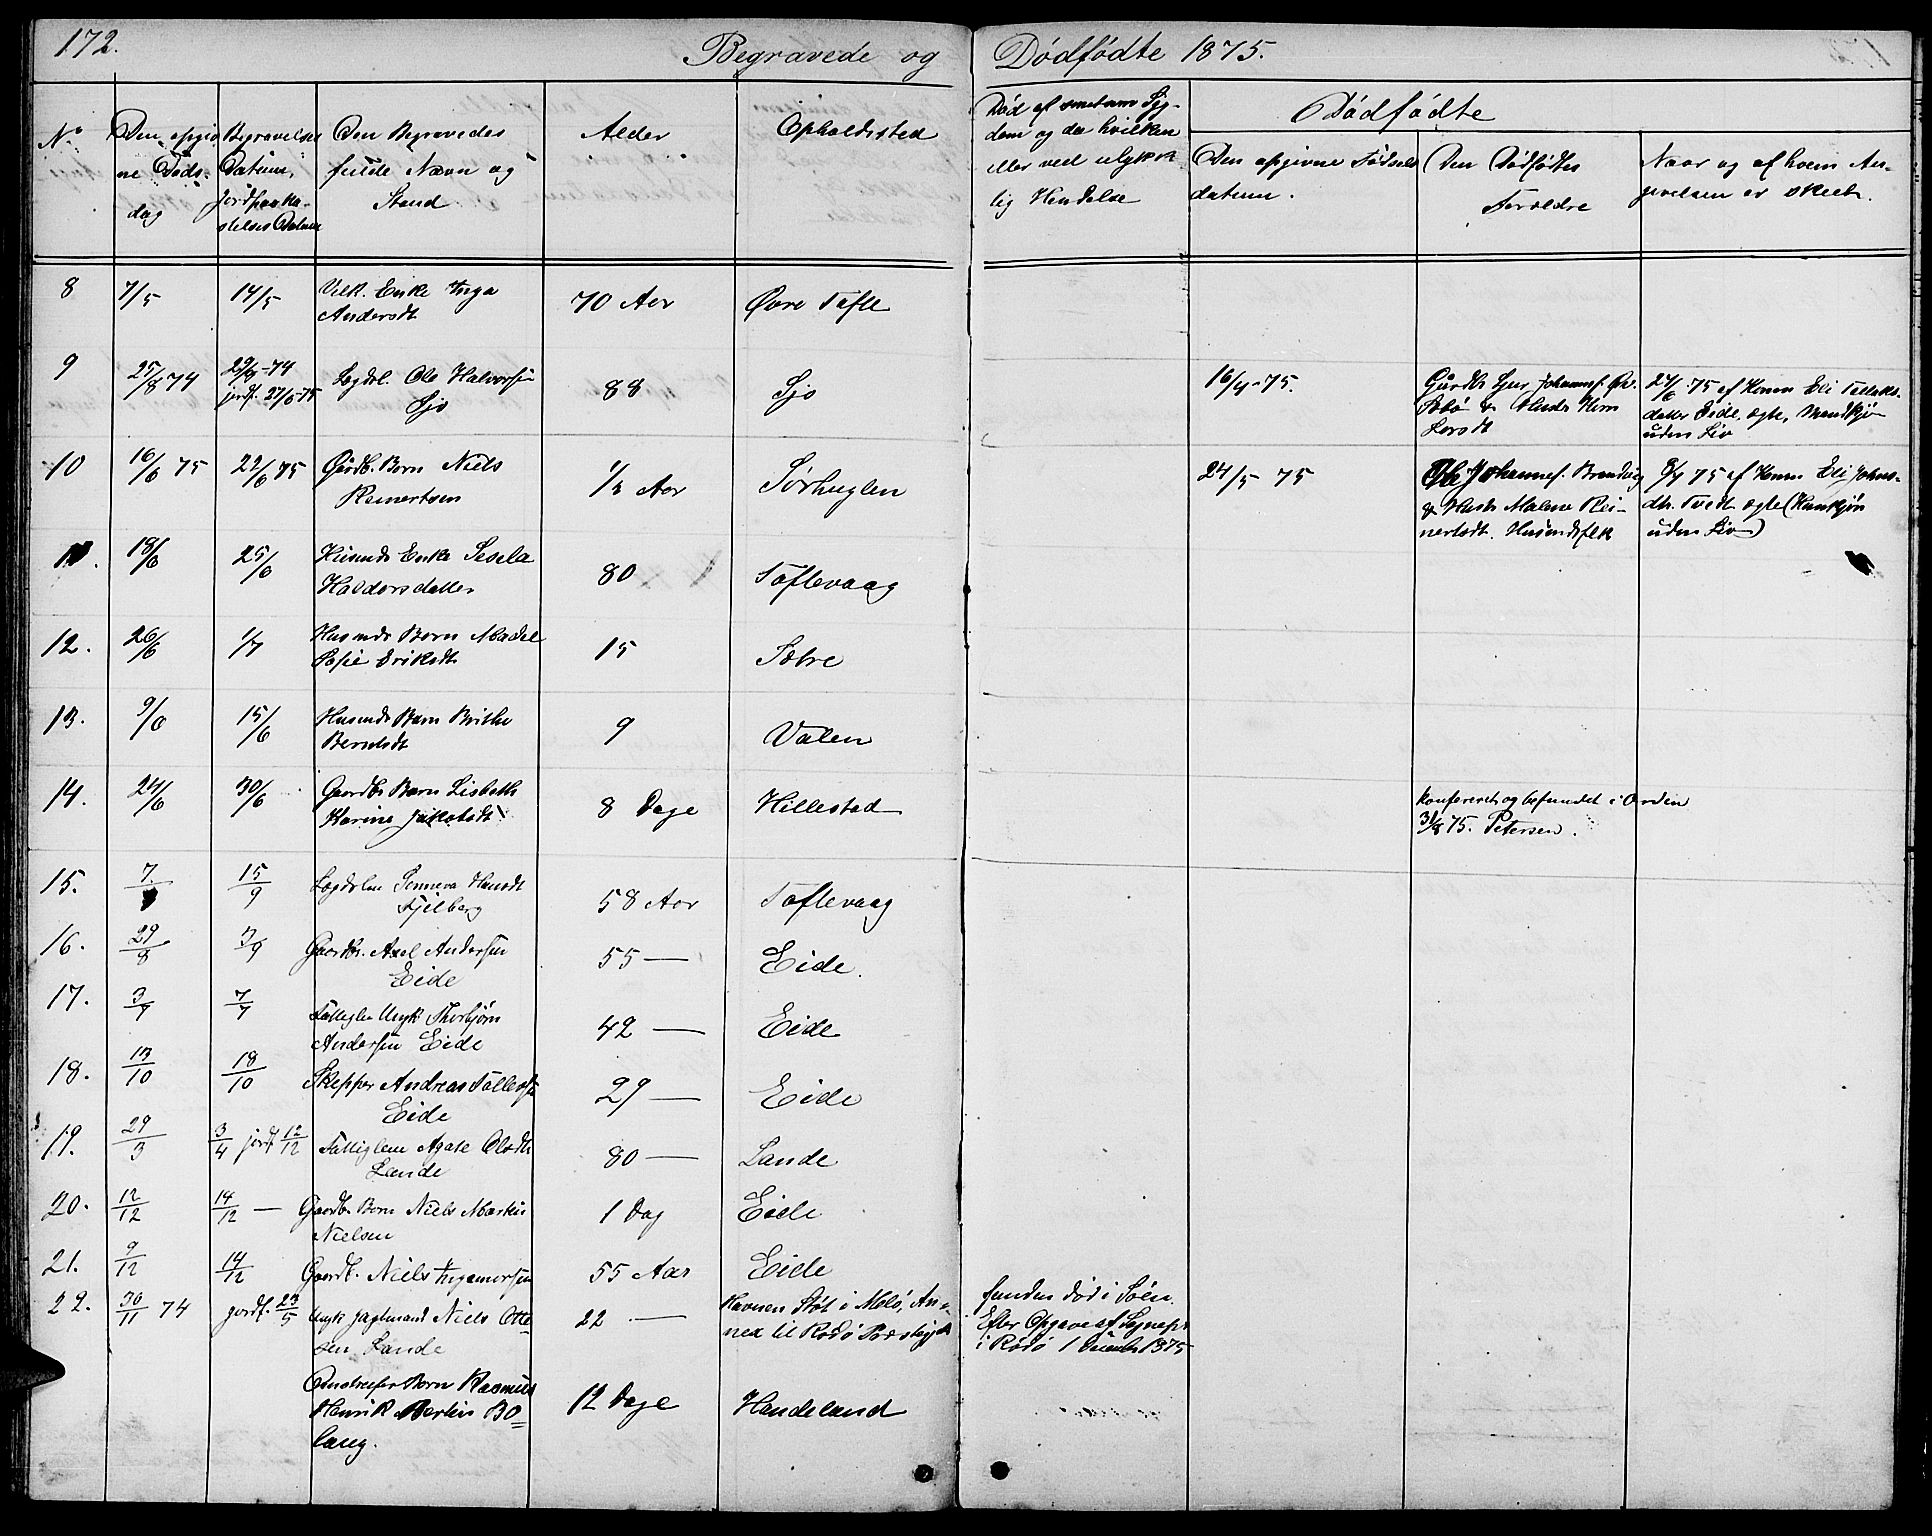 172.
Begravede og Dödfödte 1875.
No
Den opgiv
ne Døds.
dag
Begravelses
Datum,
Jordpaaka-
stelses Datum
Den Begravedes
fulde Navn og
Stand.
Alder
Opholdssted
Død af smitsom Syg-
dom og da hvilken
eller ved ulykke
lig Hendelse
Dødfødte
Den opgivne Fødsels
datum.
Den Dødfødtes
Forældre
Naar og af hvem An-
givelsen er skeet.
8 7/5 14/5 Enke Inga
Andersdt 70 Aar Øvre Tofte
9 25/8 74 29/8-74
jordf. 27/6-75 Lægdsl. Ole Halvorsen
Sjo 88 Sjo
16/4-75. Gårdbr
27/6 75 af Konen Eli Tollaks-
datter Eide, ægte, Mandkjøn
uden Liv
10 16/6 75 22/6 75 Gårdb. Barn Niels
Reinertsen 1/2 Aar Sørhuglen
24/5 75 Ole Johannes. Brandvig
& Hustr Malene Rei-
nertsdt. Husmdsflk
75 af Konen Eli Johns-
dtr. Tvedt ægte (Kvinkjøn
uden Liv)
11. 18/6 25/6 Husmds Enke Sesela
Haldorsdatter 80 Toftevaag
12. 26/6 1/7 Husmds Barn Madel
Sofie Eriksdt 15 Sætre
13. 9/6 15/6 Husmds Barn Brithe
Berntsdt 9 Valen
14. 24/6 30/6 Gaardbr Barn Lisbeth
Karine Jakobsdt 8 Dage Hillestad
Konfereret og befundet i Orden
31/8 75. Petersen.
15. 7 15/9 Lægdslem Sønneva Hansdt
Fjelberg 58 Aar Toftevaag
16. 29/8 3/9 Gaardbr. Axel Andersen
Eide 55 — Eide.
17. 3/7 7/7 Fattiglem Ungk Thorbjørn
Andersen Eide 42 — Eide
18. 13/10 18/10 Skepper Andreas Tollefsen
Eide 29 — Eide
19. 29/3 3/4 jordf. 12/12 Fattiglem Agate Olsdt
Lande 80 — Lande
20. 12/12 14/12 — Gaardb. Barn Niels Martin
Nielsen 1 Dag Eide
21. 9/12 14/12 Gaardb. Niels Ingemorsen 55 Aar Eide
22. 30/11 74 jordf. 23/5 Ungk Jagtmand Niels Otte-
sen Lande 22 — Havnen Støt i Melø, An-
nex til Rødø Præstegjeld
funden død i Søen.
Efter Opgave af Sognepr
i Rødø 1 December 1875
Barn Rasmus
Henrik Bertin Bo-
lang. 12 Dage Handeland